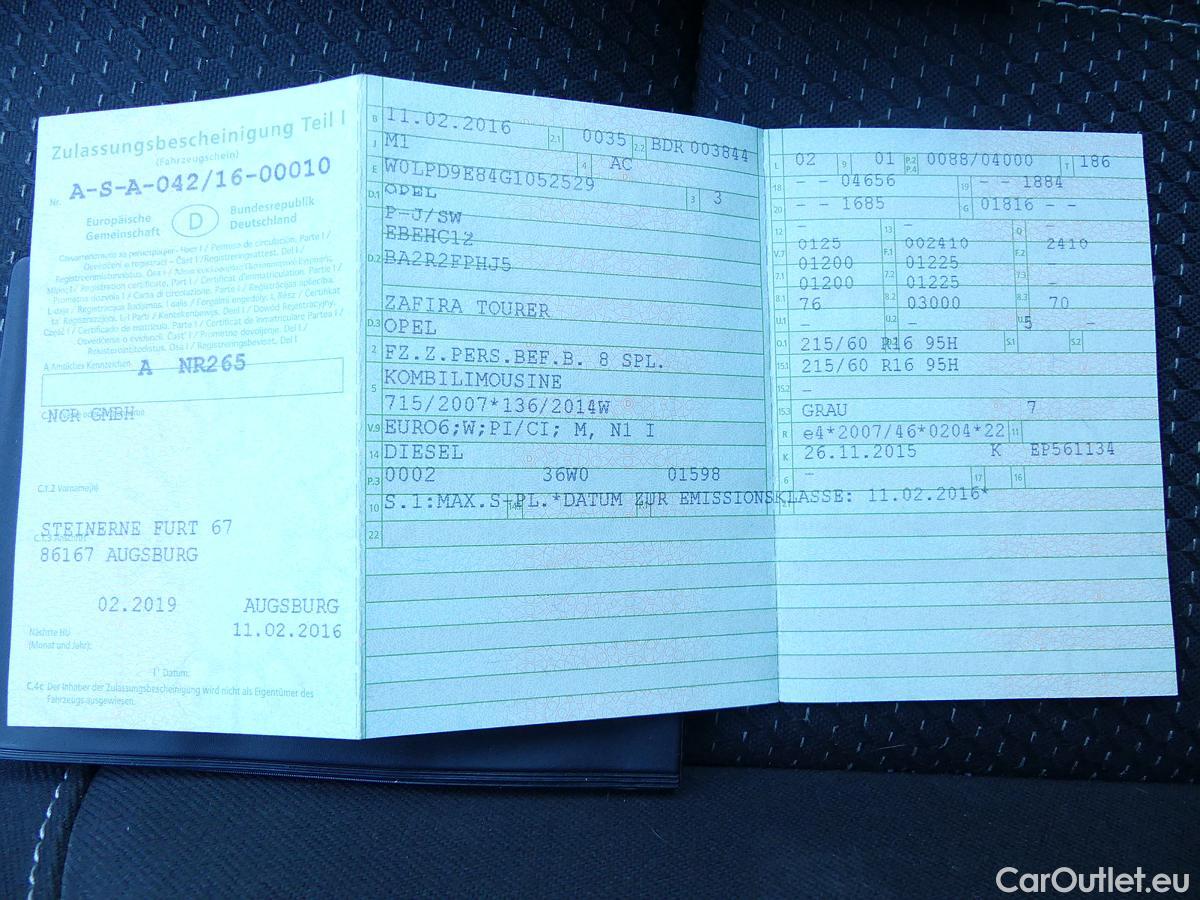 Zulassungsbescheinigung Teil I
(Fahrzeugschein)
Nr. A-S-A-042/16-00010
Europäische Gemeinschaft
D
Bundesrepublik Deutschland
A Amtliches Kennzeichen
A NR265
NCR GMBH
C.1.2 Vorname(n)
STEINERNE FURT 67
C.1.3 Anschrift
86167 AUGSBURG
02.2019 AUGSBURG
Nächste HU 11.02.2016
(Monat und Jahr):
Datum:
C.4c Der Inhaber der Zulassungsbescheinigung wird nicht als Eigentümer des
Fahrzeugs ausgewiesen.
B 11.02.2016 2.1 0035 2.2 BDR 003844
J M1 4 AC
E W0LPD9E84G1052529 3 3
D.1 OPEL
P-J/SW
EBEHC12
D.2 BA2R2FPHJ5
ZAFIRA TOURER
D.3 OPEL
2 FZ.Z.PERS.BEF.B. 8 SPL.
KOMBILIMOUSINE
5 715/2007*136/2014W
V.9 EURO6;W;PI/CI; M, N1 I
14 DIESEL
P.3 0002 36W0 01598
10 S.1:MAX.S-PL.*DATUM ZUR EMISSIONSKLASSE: 11.02.2016*
22
L 02 9 01 P.2 P.4 0088/04000 T 186
18 - - 04656 19 - - 1884
20 - - 1685 G 01816 - -
12 - 13 - Q -
V.7 0125 F.1 002410 F.2 2410
7.1 01200 7.2 01225 7.3 -
8.1 01200 8.2 01225 8.3 -
U.1 76 U.2 03000 U.3 70
O.1 - - S.1 5 S.2 -
15.1 215/60 R16 95H
15.2 215/60 R16 95H
15.3 -
R GRAU 11 7
K e4*2007/46*0204*22
6 26.11.2015 17 K 16 EP561134
21 -
CarOutlet.eu